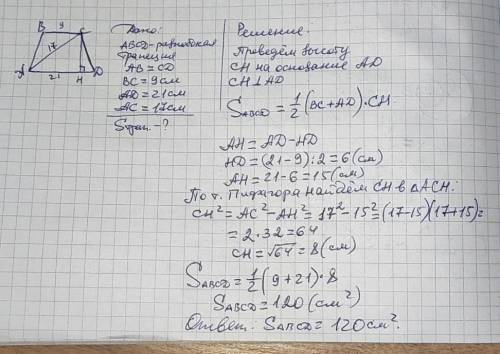 B 9 C
17
A 21 H D
Дано:
ABCD-равнобокая
трапеция
AB = CD
BC = 9см
AD = 21см
AC = 17см
Sтрап. -?
Решение.
Проведём высоту
CH на основание AD
CH ⊥ AD
S_ABCD = 1/2 (BC + AD) · CH
AH = AD - HD
HD = (21 - 9) : 2 = 6 (см)
AH = 21 - 6 = 15 (см)
По т. Пифагора найдём CH в △ACH.
CH² = AC² - AH² = 17² - 15² = (17-15)(17+15) =
= 2 · 32 = 64
CH = √64 = 8 (см)
S_ABCD = 1/2 (9 + 21) · 8
S_ABCD = 120 (см²)
Ответ: S_ABCD = 120 см².